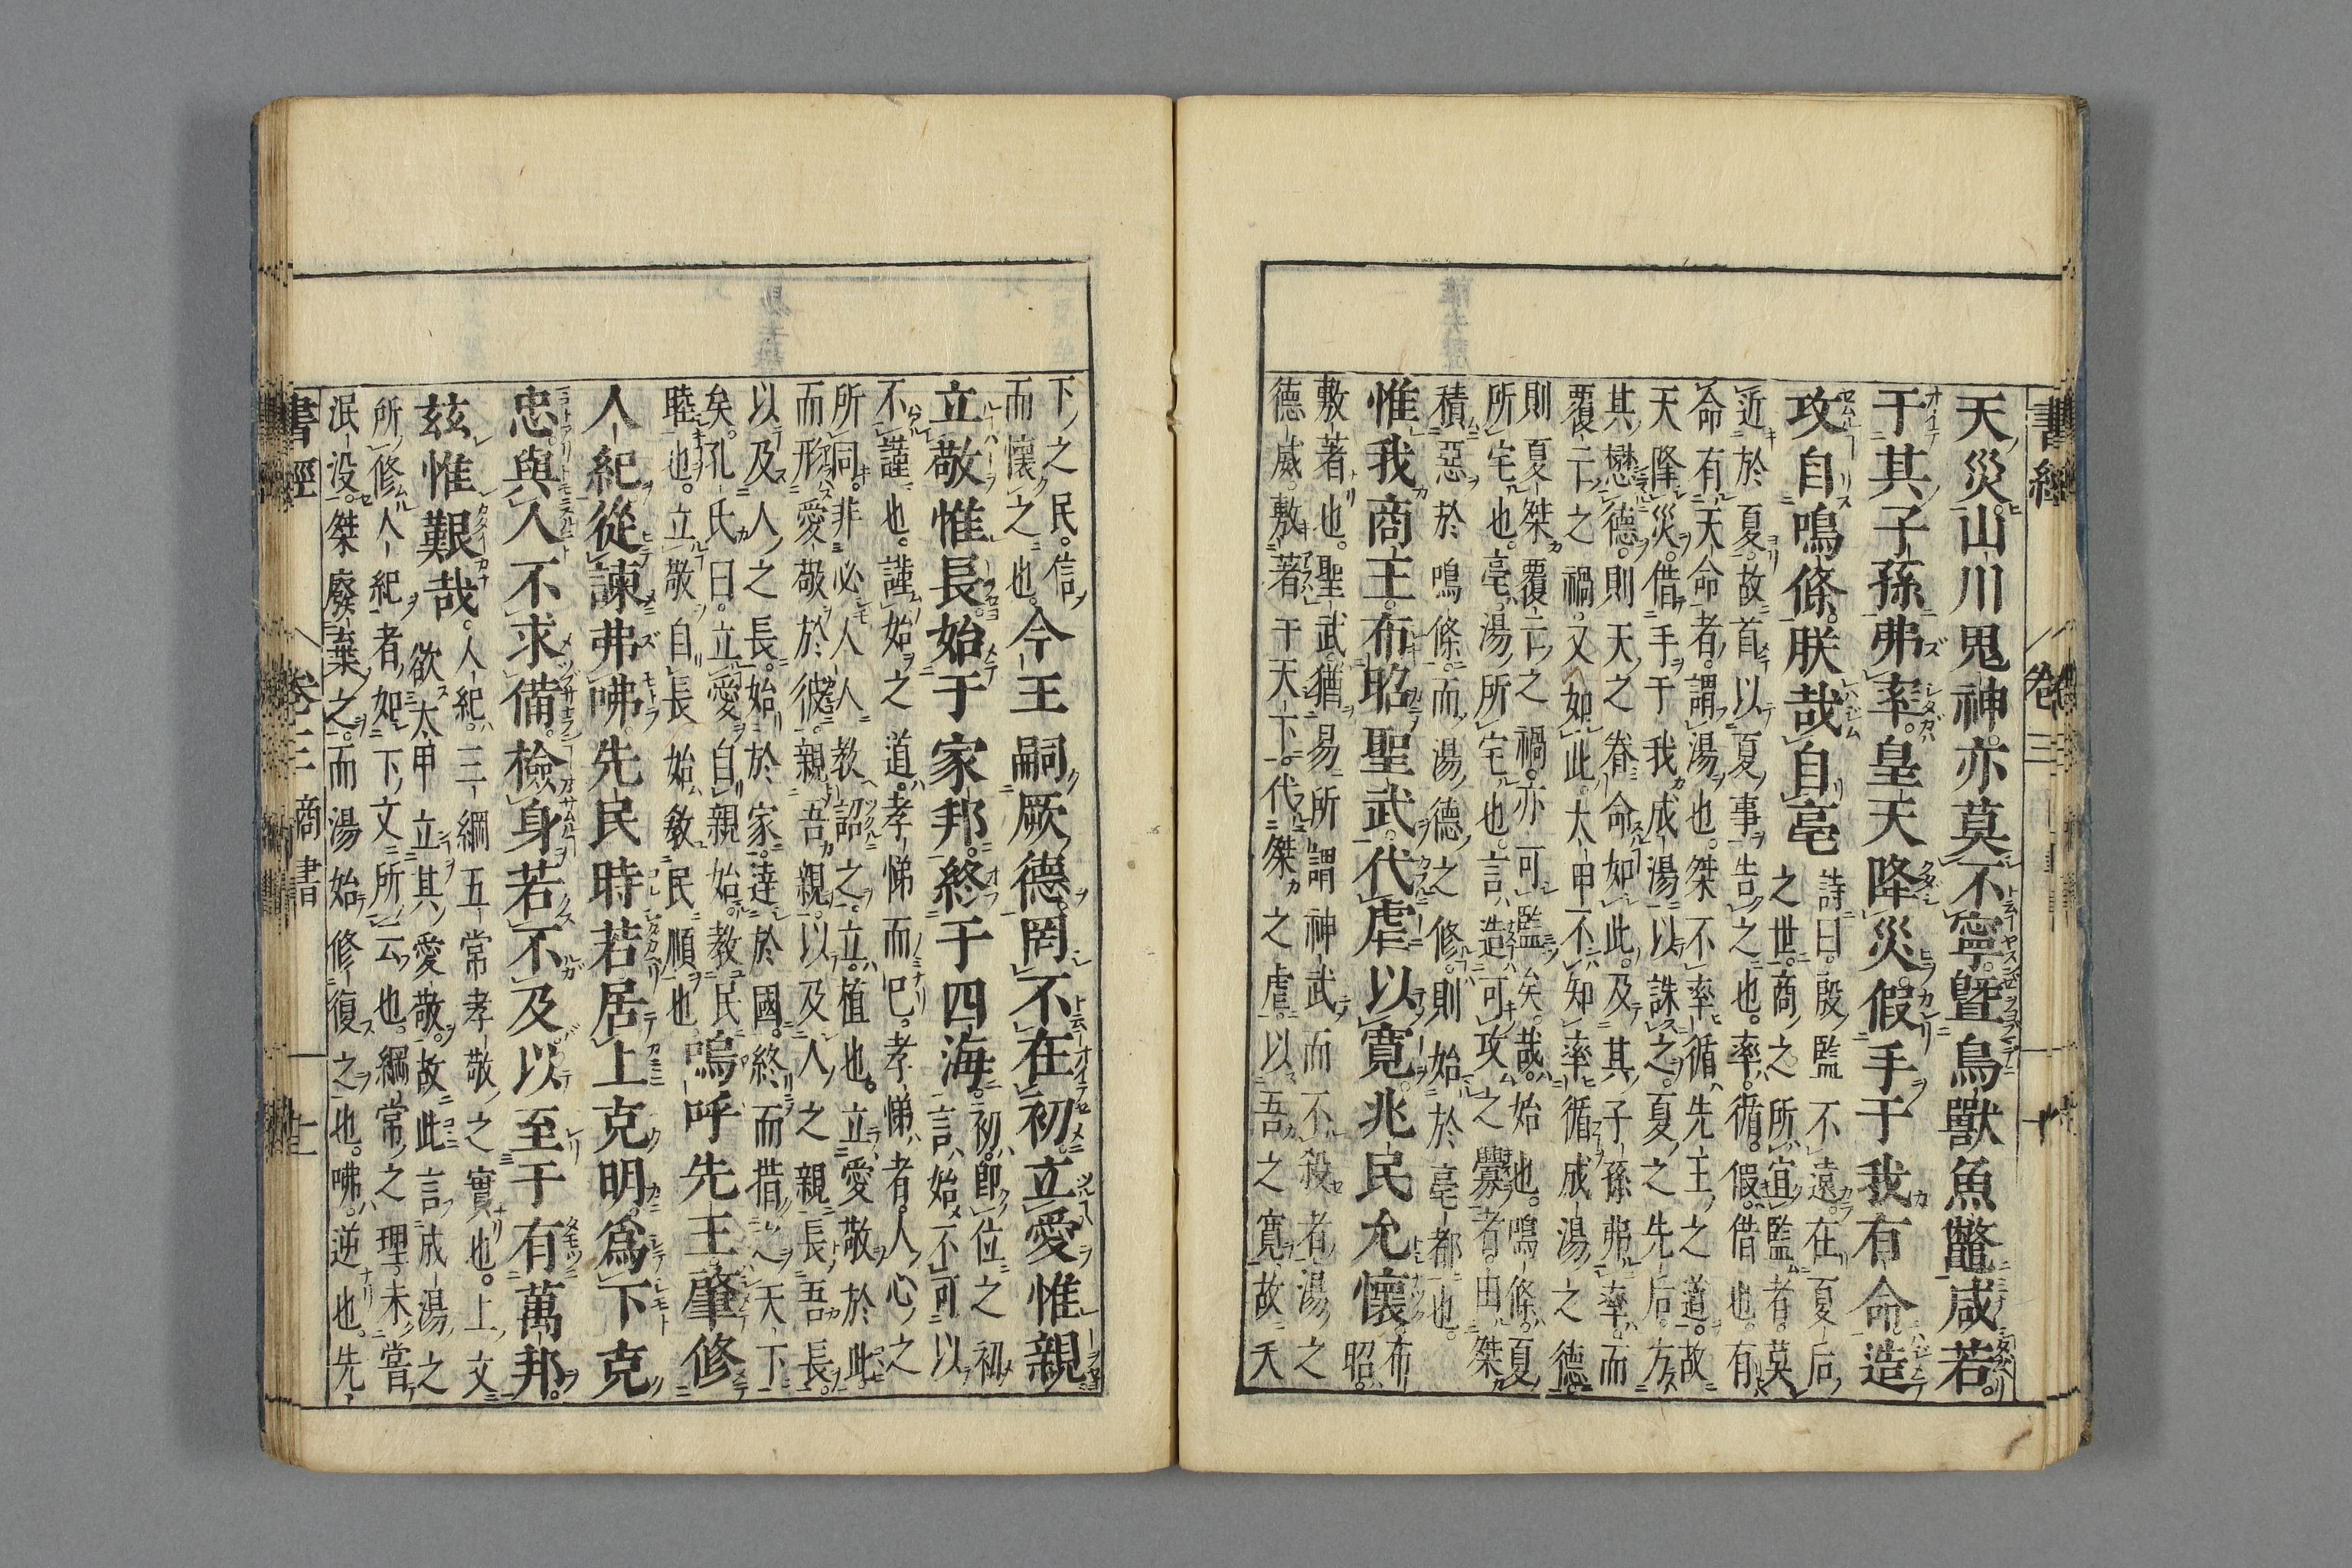 書經 卷三 十
天災山川鬼神亦莫不寧曁鳥獸魚鼈咸若
于其子孫弗率皇天降災假手于我有命造
攻自鳴條朕哉自亳
詩曰殷監不遠在夏后
之世商之所宜監者莫
近於夏故首以夏事告之也率循假借也有
命有天命者謂湯也桀不率循先王之道故
天降災借手于我成湯以誅之夏之先后方
其懋德則天之眷命如此及其子孫弗率而
覆亡之禍又如此太甲不知率循成湯之德
則夏桀覆亡之禍亦可監矣哉始也鳴條夏
所宅也亳湯所宅也言造可攻之釁者由桀
積惡於鳴條而湯德之修則始於亳都也
惟我商王布昭聖武代虐以寬兆民允懷
布
昭
敷著也聖武猶易所謂神武而不殺者湯之
德威敷著于天下代桀之虐以吾之寬故天
下之民信
而懷之也
今王嗣厥德罔不在初立愛惟親
立敬惟長始于家邦終于四海
初即位之初
言始不可以
不謹也謹始之道孝悌而已孝悌者人心之
所同非必人人教詔之立植也立愛敬於此
而形愛敬於彼親吾親以及人之親長吾長
以及人之長始於家達於國終而措之天下
矣孔氏曰立愛自親始教民
睦也立敬自長始教民順也
嗚呼先王肇修
人紀從諫弗咈先民時若居上克明爲下克
忠與人不求備檢身若不及以至于有萬邦
茲惟艱哉
人紀三綱五常孝敬之實也上文
欲太甲立其愛敬故此言成湯之
所修人紀者如下文所云也綱常之理未嘗
泯沒桀廢棄之而湯始修復之也咈逆也先
書經 卷三 商書 十一